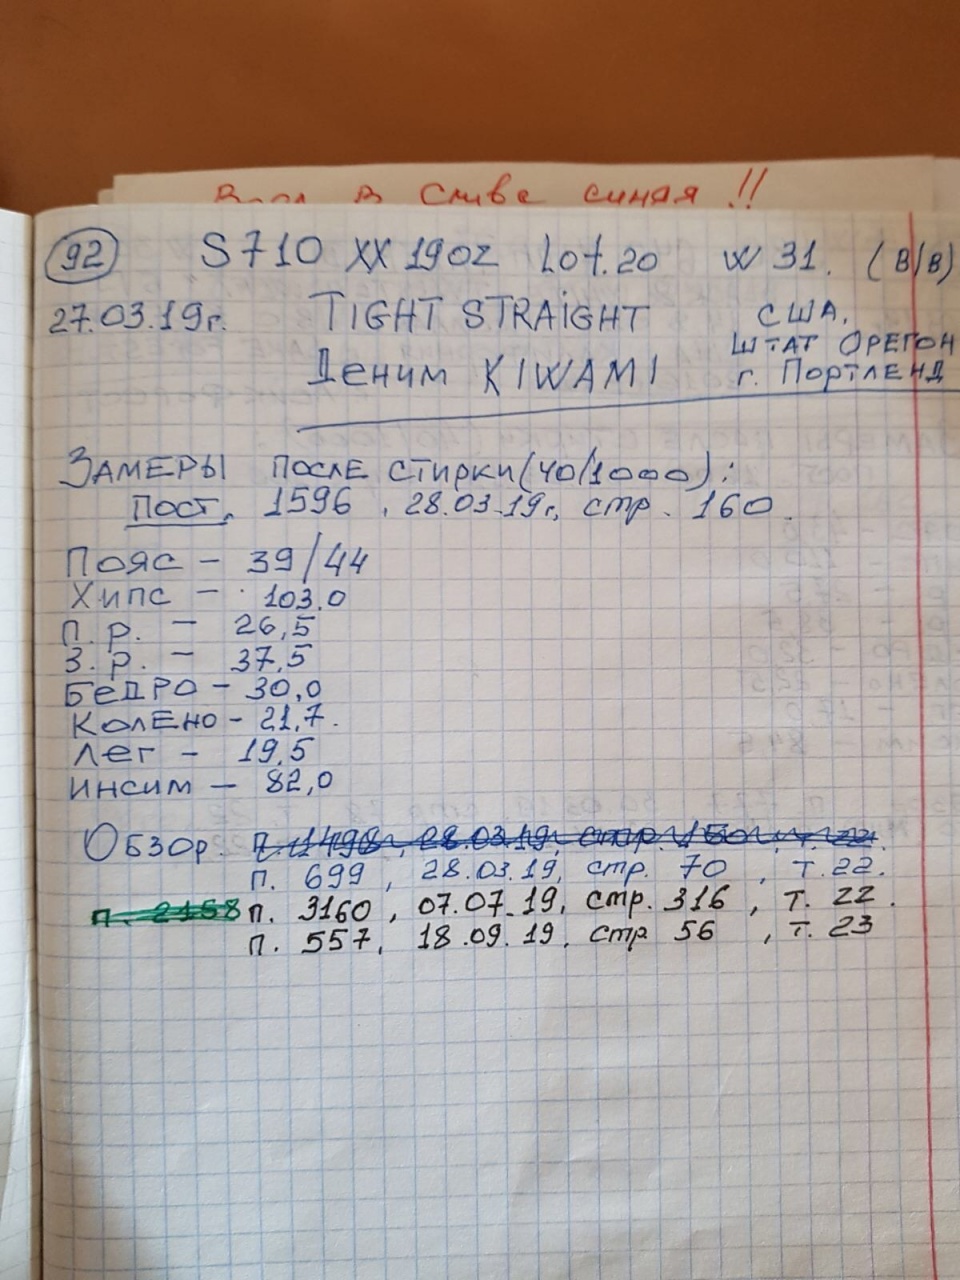 в сливе синая !!
92 S710 XX 19OZ Lot.20 W 31. (В/В)
27.03.19г. TIGHT STRAIGHT США,
ШТАТ ОРЕГОН
Деним KIWAMI г. Портленд
Замеры после стирки (40/1000):
Пост. 1596, 28.03.19г, стр. 160.
Пояс - 39/44
Хипс - 103.0
П.р. - 26,5
З.р. - 37,5
Бедро - 30,0
Колено - 21,7.
Лег - 19,5
Инсим - 82,0
Обзор. П. 1498, 28.03.19, стр. 150, т. 22.
п. 699, 28.03.19, стр. 70, т.22.
п. 2158 п. 3160, 07.07.19, стр. 316, т. 22.
п. 557, 18.09.19, стр 56, т. 23